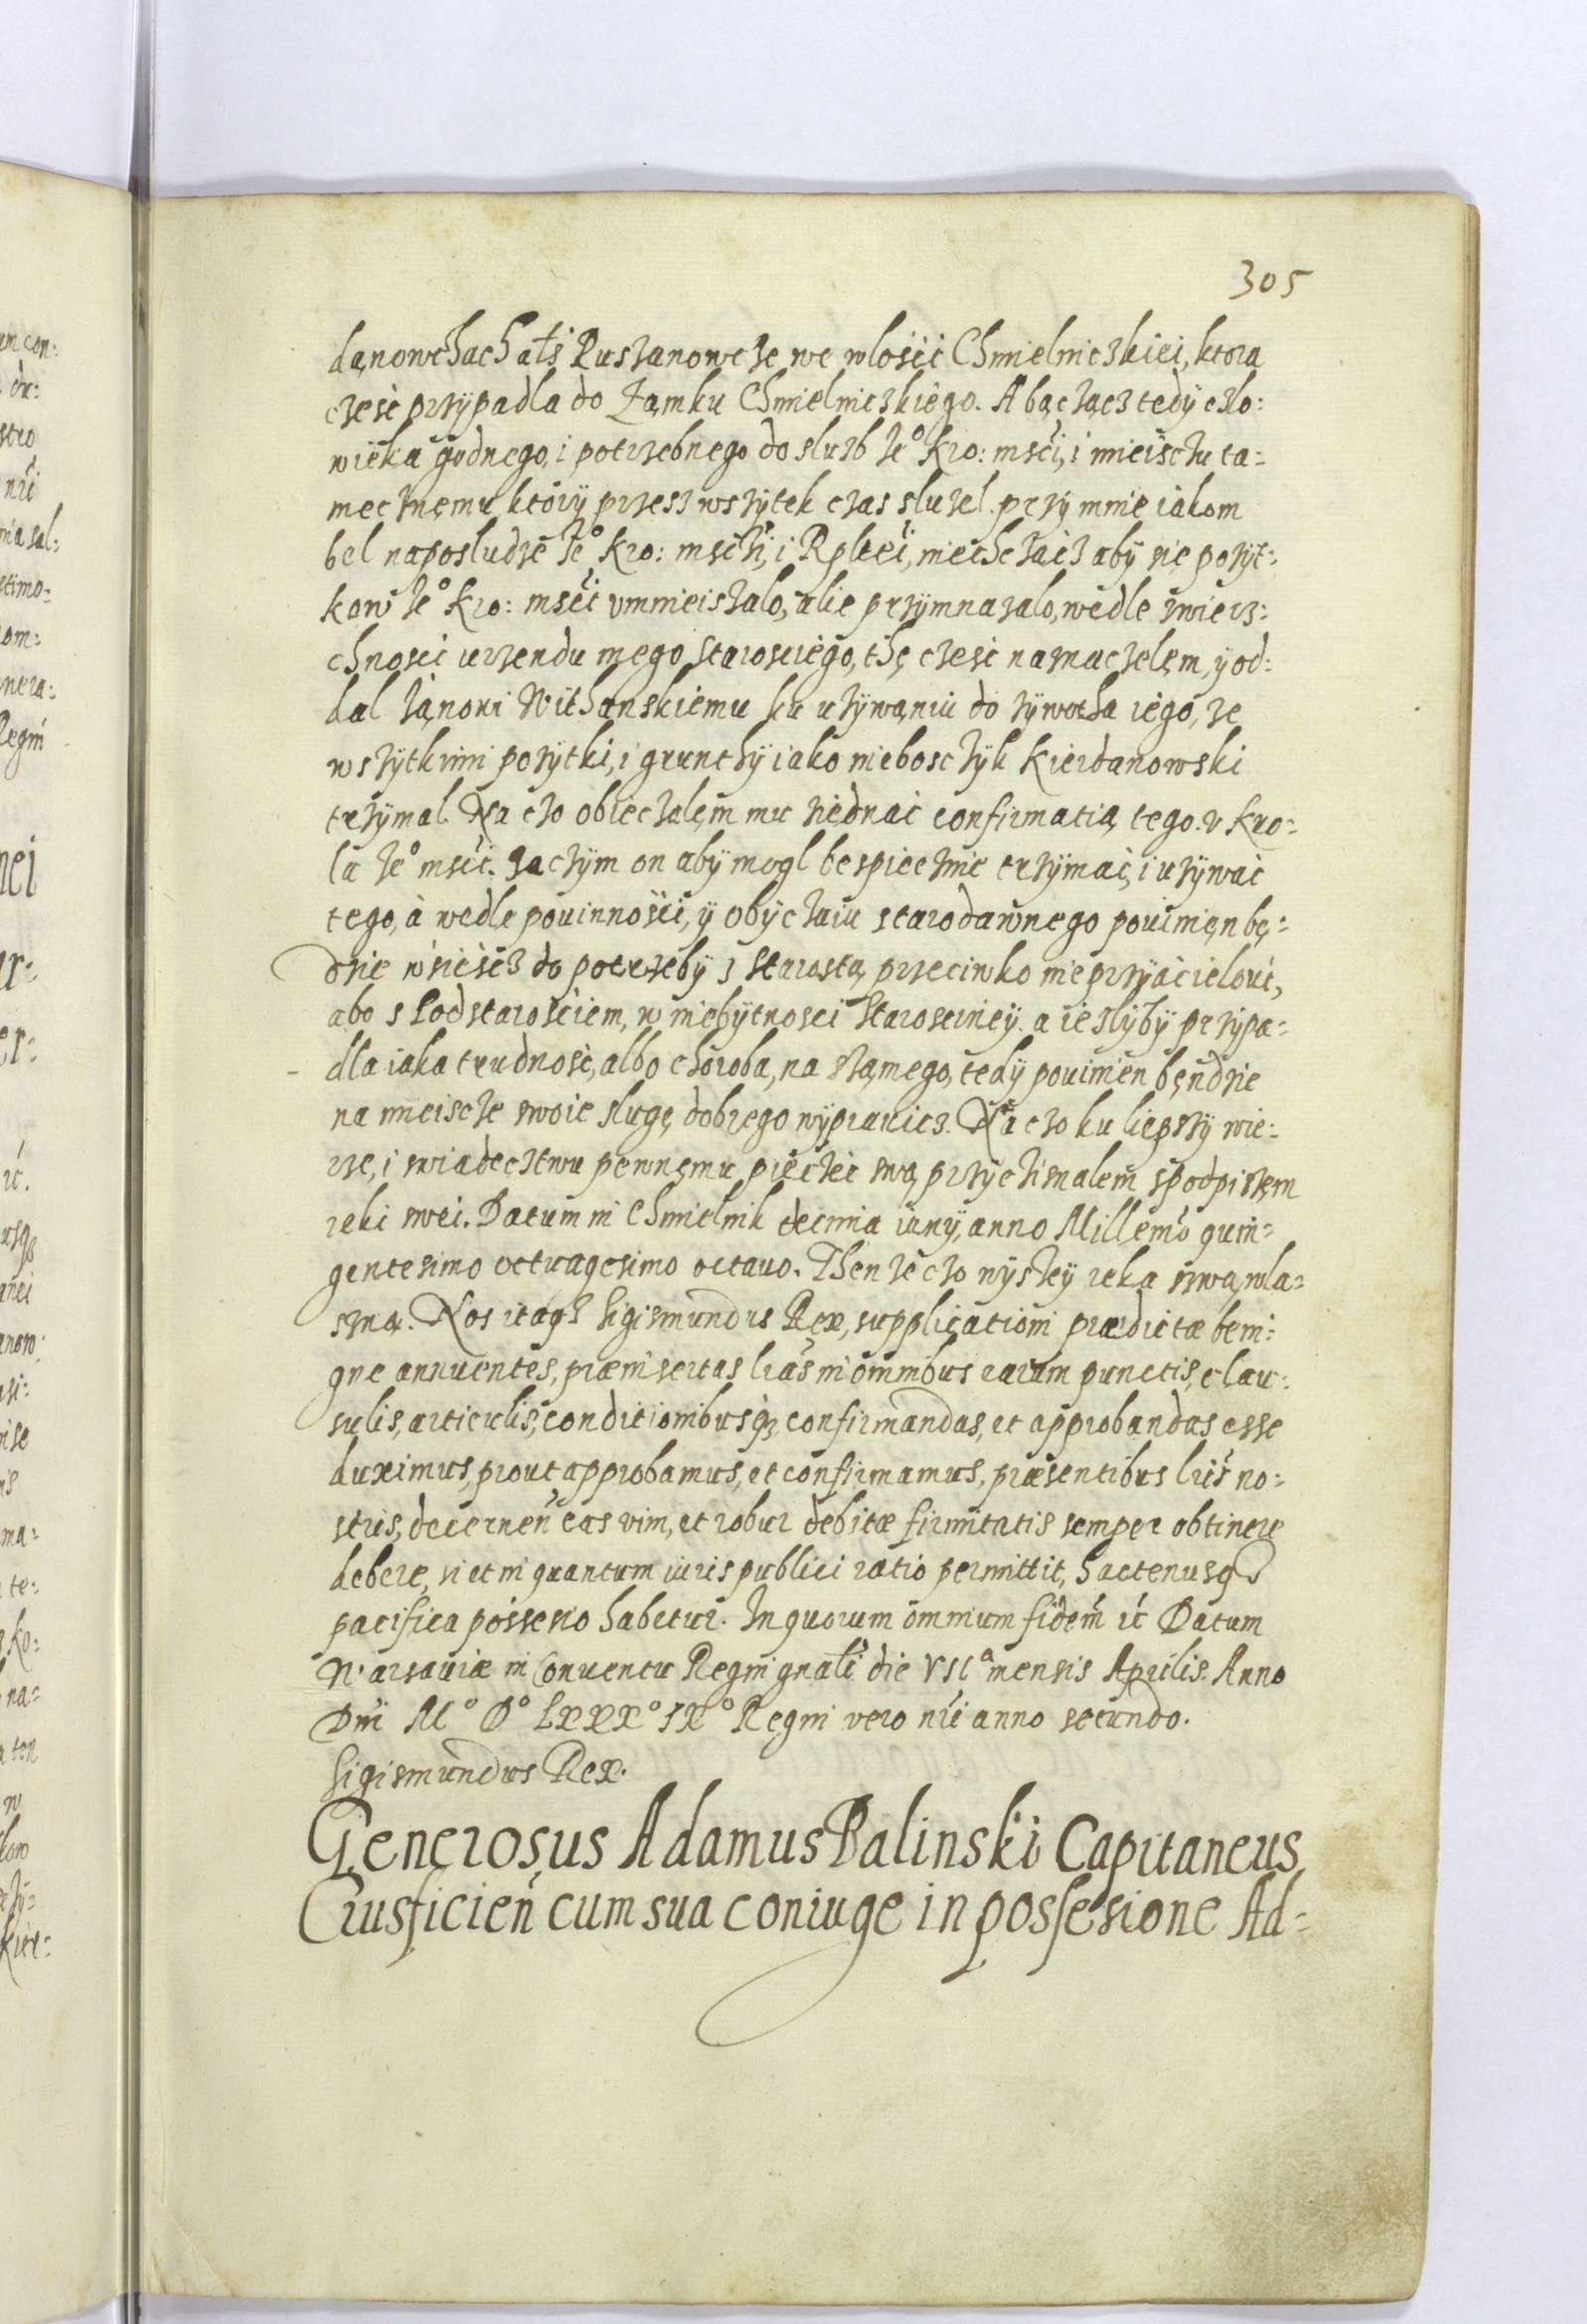 305
danowczach ałs Ruszanowcze we włośći Chmielniczkiei, ktora
cześć przÿpadla do Zamku Chmielniczkiégo. A bączącz tedÿ czlo:
wiéka godnego, i potrzebnego do služb Ie° Kro: msći, i mieisczu ta=
mecznęmu, ktorÿ przesz wszÿtek czas služel przÿ mnie iakom
bel na posludze Ie° Kro: mśczi, i Rpltei, niechczaicz abÿ sie požÿt:
kow Ie° Kro: msći vmnieiszalo, alie przÿmnažalo, wedle zwierz:
chnosci urzendu mego Starosciego, thę cześć naznaczelęm, ÿ od:
dal Ianowi Withanskiemu ku užÿwąniu do žÿwotha iego, ze
wszÿtkimi požÿtki, i grunthÿ iako niebosczÿk Kierdanowski
trzÿmal. Na czo obieczalęm mu ziednać confirmatią tego v Kro=
la Ie° msći. Zaczÿm on abÿ mogl bespiecznie trzÿmać, i užÿwać
tego, à wedle powinnośći, ÿ obÿczaiu starodawnego powinięn bę=
dzie wsieśćz do potrzebÿ z Starostą przeciwko nieprzÿiacielowi,
abo s Podstarośćiem, w niebÿtnosci Staroscineÿ. a ieslÿbÿ przÿpa=
dla iaka trudność, albo choroba, na szamego, tedÿ powinien będzie
na mieiscze swoie slugę dobrego wÿprawicz. Na czo ku liepszÿ wie=
rze, i swiadecztwu pewnęmu pieczęć swą przÿcisnalem s podpiszem
reki swei. Datum in Chmielnik decima iunÿ, anno Millemo quin=
gentesimo octuagesimo octauo. Then Ieczo wÿszeÿ reka szwą wla=
szną. Nos itaq3 Sigismundus Rex, supplicationi prædictæ beni=
gne annuentes, præinsertas lrãs in omnibus earum punctis, clau=
sulis, articulis, conditionibusq3, confirmandas, et approbandas esse
duximus, prout approbamus, et confirmamus, præsentibus lris no=
stris, decerneñ eas vim, et robur debitæ firmitatis semper obtinere
debere, si et in quantum iuris publici ratio permittit, hactenusq3
pacifica possesio habetur. In quorum omnium fidem ić Datum
Warsauiæ in Conuentu Regni gnali die VII ͣ mensis Aprilis. Anno
Dni M° D° LXXX° IX° Regni vero nri anno secundo.
Sigismundus Rex.
Generosus Adamus Balinski Capitaneus
Crusficieñ cum sua coniuge in possesione Ad=